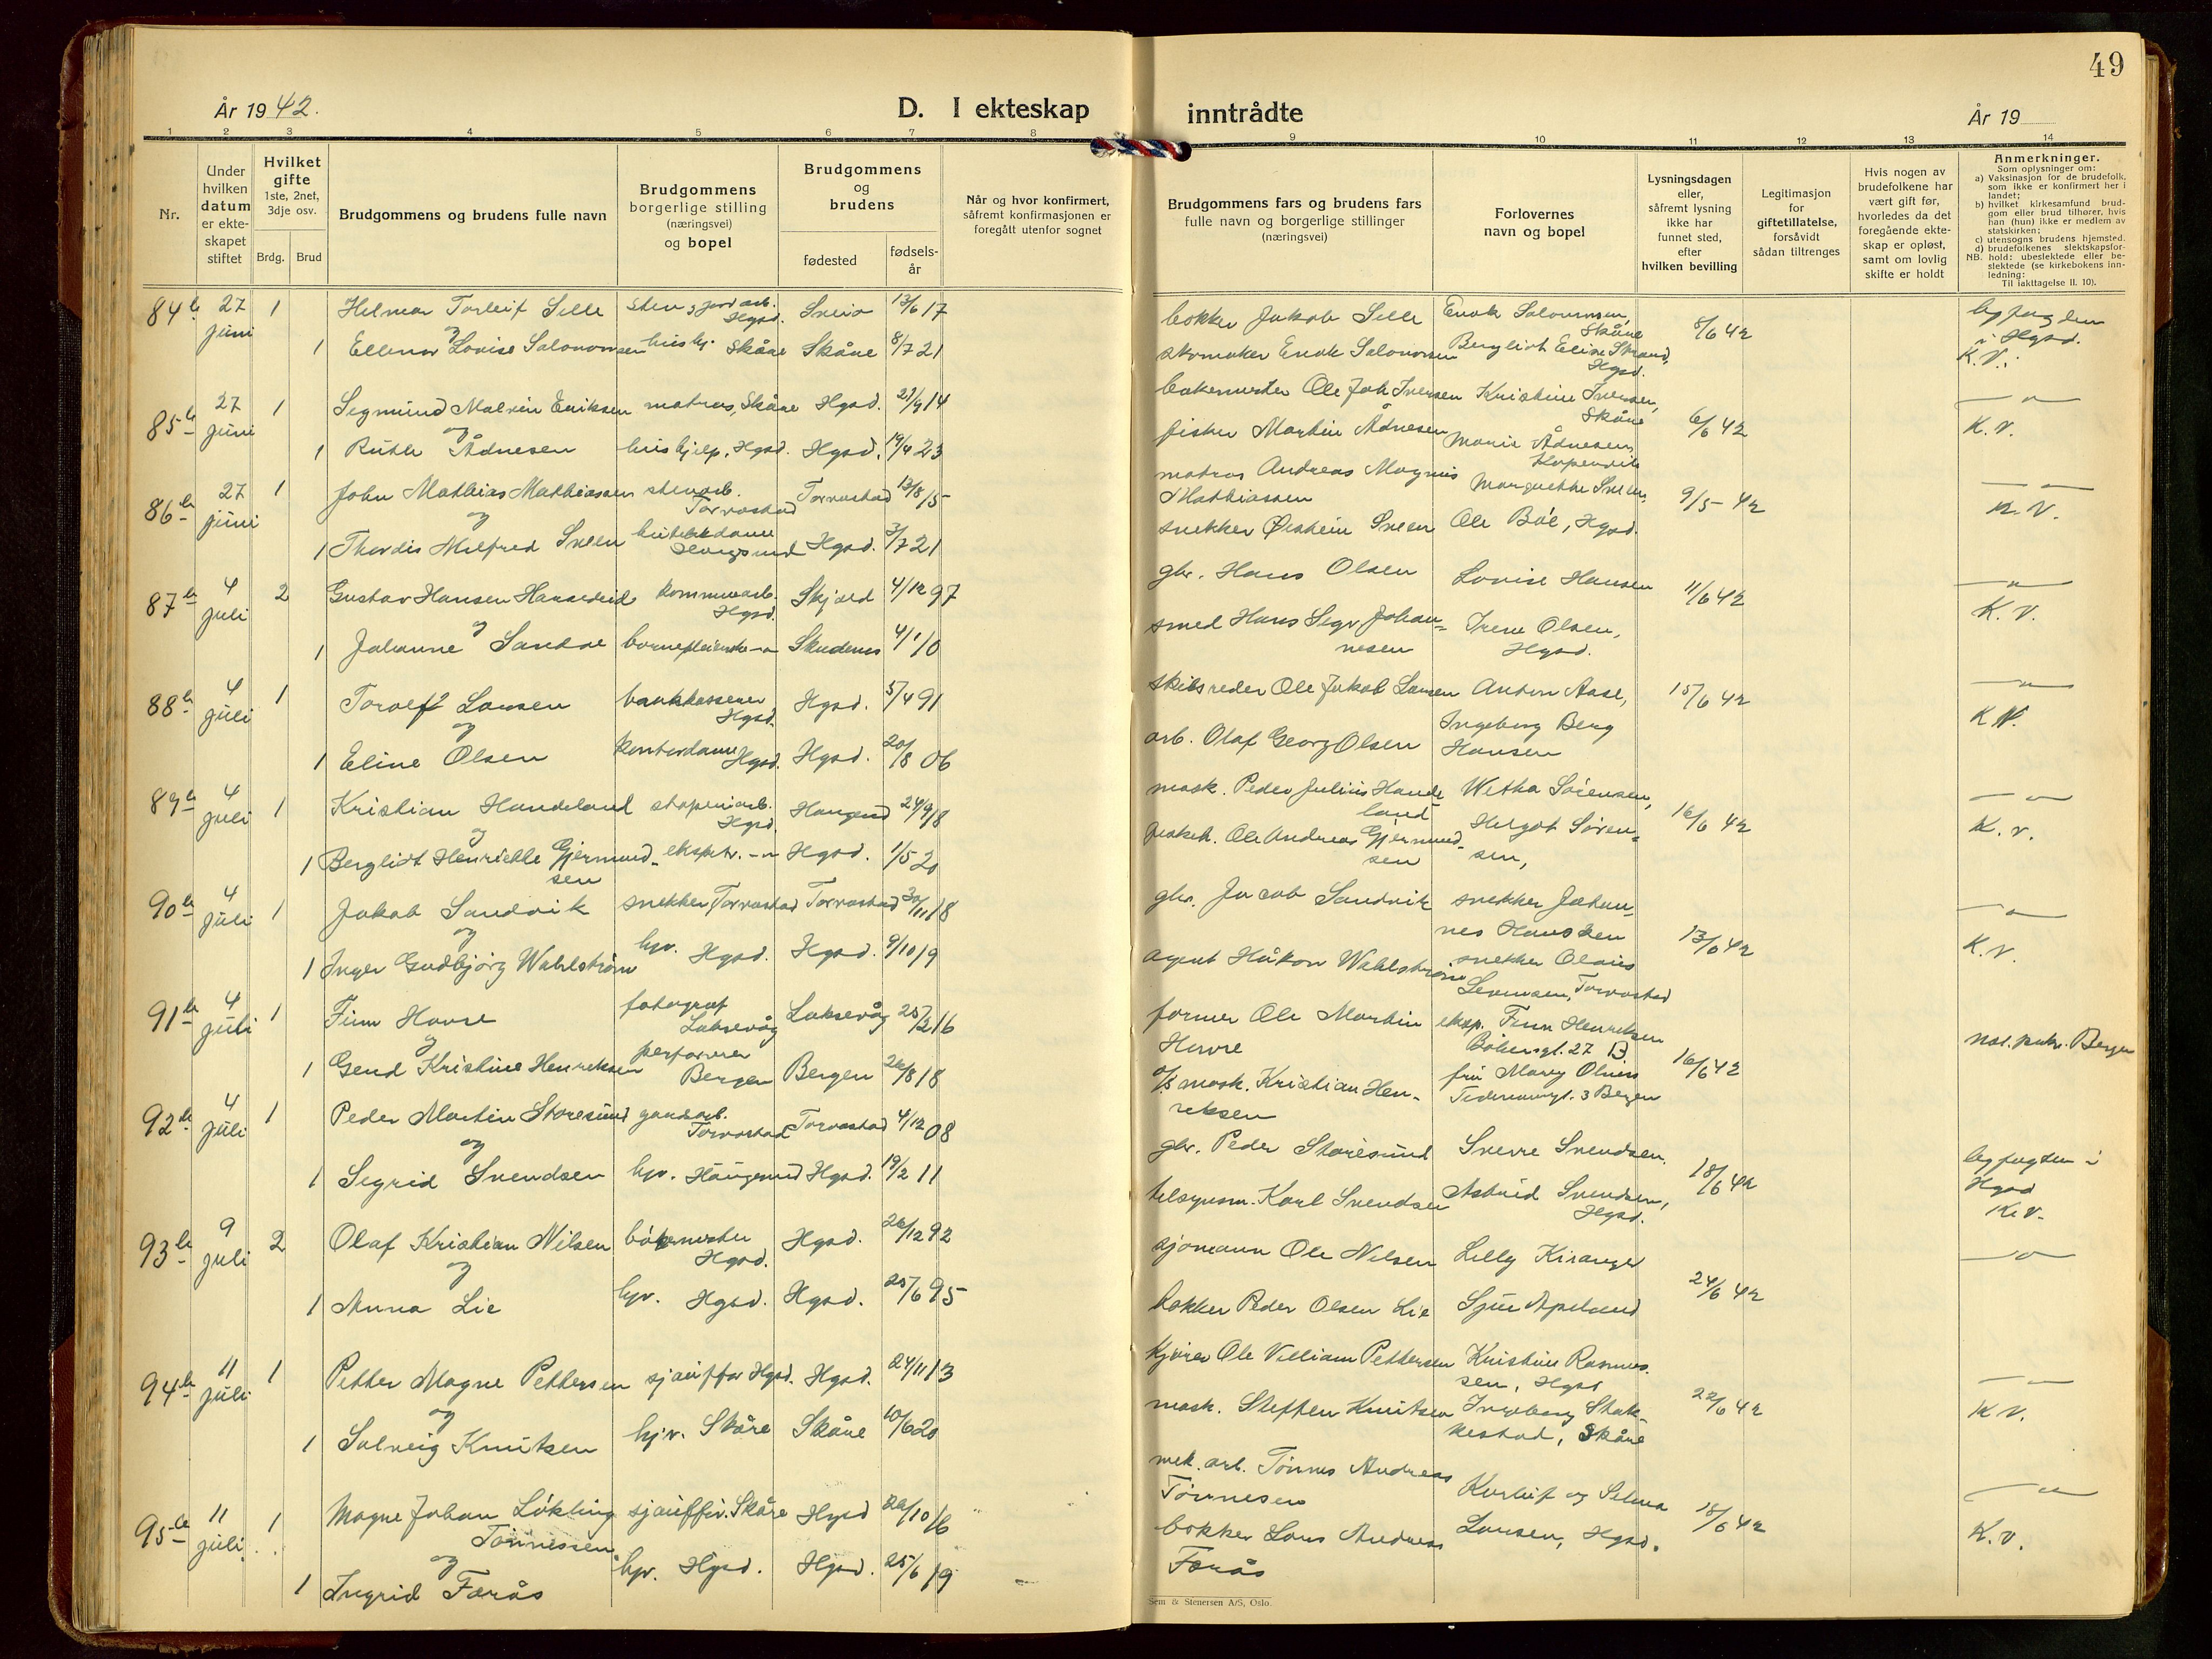 49
År 1942.
D. I ekteskap inntrådte
År 19
1 2 3 4 5 6 7 8 9 10 11 12 13 14
Nr.
Under hvilken datum er ekteskapet stiftet
Hvilket gifte
1ste, 2net, 3dje osv.
Brdg. Brud
Brudgommens og brudens fulle navn
Brudgommens borgerlige stilling (næringsvei) og bopel
Brudgommens og brudens
fødested
fødsels-år
Når og hvor konfirmert, såfremt konfirmasjonen er foregått utenfor sognet
Brudgommens fars og brudens fars fulle navn og borgerlige stillinger (næringsvei)
Forlovernes navn og bopel
Lysningsdagen eller, såfremt lysning ikke har funnet sted, efter hvilken bevilling
Legitimasjon for giftetillatelse, forsåvidt sådan tiltrenges
Hvis nogen av brudefolkene har vært gift før, hvorledes da det foregående ekteskap er opløst, samt om lovlig skifte er holdt
Anmerkninger.
Som oplysning om:
a) Vaksinasjon for de brudefolk, som ikke er konfirmert her i landet;
b) hvilket kirkesamfund brudgom eller brud tilhører, hvis han (hun) ikke er medlem av statskirken;
c) utensogns brudens hjemsted.
d) brudefolkenes slektskapsforhold: ubeslektede eller beslektede (se kirkebokens innledning:
NB.
Til iakttagelse II. 10).
84 27 juni 1 Helmar Torleif Selle Hgsd. Sveio 13/6 17 bøkker Jakob Selle Enok Salomonsen, Skåre 8/6 42 i Hgsd.
og
1 Ellenor Lovise Salomonsen Skåre Skåre 8/7 21 skomaker Enok Salomonsen Bergliot Elise Strand, Hgsd. K.V.
85 27 juni 1 Segmund Malvin Eriksen matros, Skåre Hgsd. 21/9 14 Kristine Iversen, Skåre 6/6 42 K.V.
og
1 Ruth Ådnesen hushjelp, Hgsd. Hgsd. 19/4 23 fisker Martin Ådnesen Marie Ådnesen,
86 27 juni 1 John Mathias Mathiassen stenarb. Torvastad Torvastad 13/8 15 matros Andreas Magnus Mathiassen 9/5 42 K.V.
og
1 Thordis Milfred Sveen Haugesund Hgsd. 3/7 21 snekker Øistein Sveen Ole Bøe, Hgsd.
87 4 juli 2 Gustav Hansen Hgsd. Skjold 4/12 97 gbr. Hans Olsen Lovise Hansen 11/6 42 K.V.
og
1 Johanne Sandve Skudenes 4/1 10 smed Hans Segv. Johannesen Irene Olsen, Hgsd.
88 4 juli 1 Torolf Larsen bankkasserer Hgsd. Hgsd. 5/4 91 skibsreder Ole Jakob Larsen Anton Aase, 15/6 42 K.V.
og
1 Eline Olsen kontordame Hgsd. Hgsd. 20/8 06 arb. Olaf Georg Olsen Ingeborg Berg Hansen
89 4 juli 1 Kristian Handeland Hgsd. Haugesund 24/9 18 mask. Peder Julius Handeland Wetha Sørensen, 16/6 42 K.V.
og
1 Bergliot Henriette Gjermundsen ekspedtr. Hgsd. 1/5 20 Ole Andreas Gjermundsen Helgot Sørensen,
90 4 juli 1 Jakob Sandvik snekker, Torvastad Torvastad 30/11 18 gbr. Jacob Sandvik snekker Johannes Hansken 13/6 42 K.V.
og
1 Inger Gudbjørg Wahlstrøm hjv. Hgsd. Hgsd. 9/10 19 agent Håkon Wahlstrøm snekker Olaus Torvastad
91 4 juli 1 Finn Hovse fotograf Laksevåg Laksevåg 25/2 16 former Ole Martin eksp. Finn Henriksen 27 B 16/6 42 Bergen
og
1 Gerd Kristine Henriksen Bergen Bergen 26/8 18 mask. Kristian Henriksen fru Mary Olsen 3 Bergen
92 4 juli 1 Peder Martin Storesund gårdsarb. Torvastad Torvastad 4/12 08 gbr. Peder Storesund Sverre Svendsen. 18/6 42 i Hgsd
og
1 Sigrid Svendsen hjv. Haugesund Hgsd. 19/2 11 Karl Svendsen Astrid Svendsen, Hgsd. K.V.
93 9 juli 2 Olaf Kristian Nilsen Hgsd. Hgsd. 26/12 92 sjømann Ole Nilsen Lilly Kiranger 24/6 42
og
1 Anna Lie hjv. Hgsd. Hgsd. 25/6 95 bøkker Peder Olsen Lie Sjur Apeland
94 11 juli 1 Petter Magne Pettersen sjauffør Hgsd. Hgsd. 24/11 13 kjører Ole Villiam Pettersen Kristine Rasmussen, Hgsd 22/6 42 K.V.
og
1 Solveig Knutsen hjv. Skåre Skåre 10/6 20 mask. Steffen Knutsen Ingeborg Stakkestad, Skåre
95 11 juli 1 Magne Johan Løkling Tønnessen sjauffør. Skåre Hgsd 26/10 16 mek. arb. Tønnes Andreas Tønnesen og Selma Larsen, Hgsd. 18/6 42 K.V.
og
1 Ingrid Førås hjv. Hgsd. Hgsd. 25/6 19 bøkker Lars Andreas Førås
Sem & Stenersen A/S, Oslo.